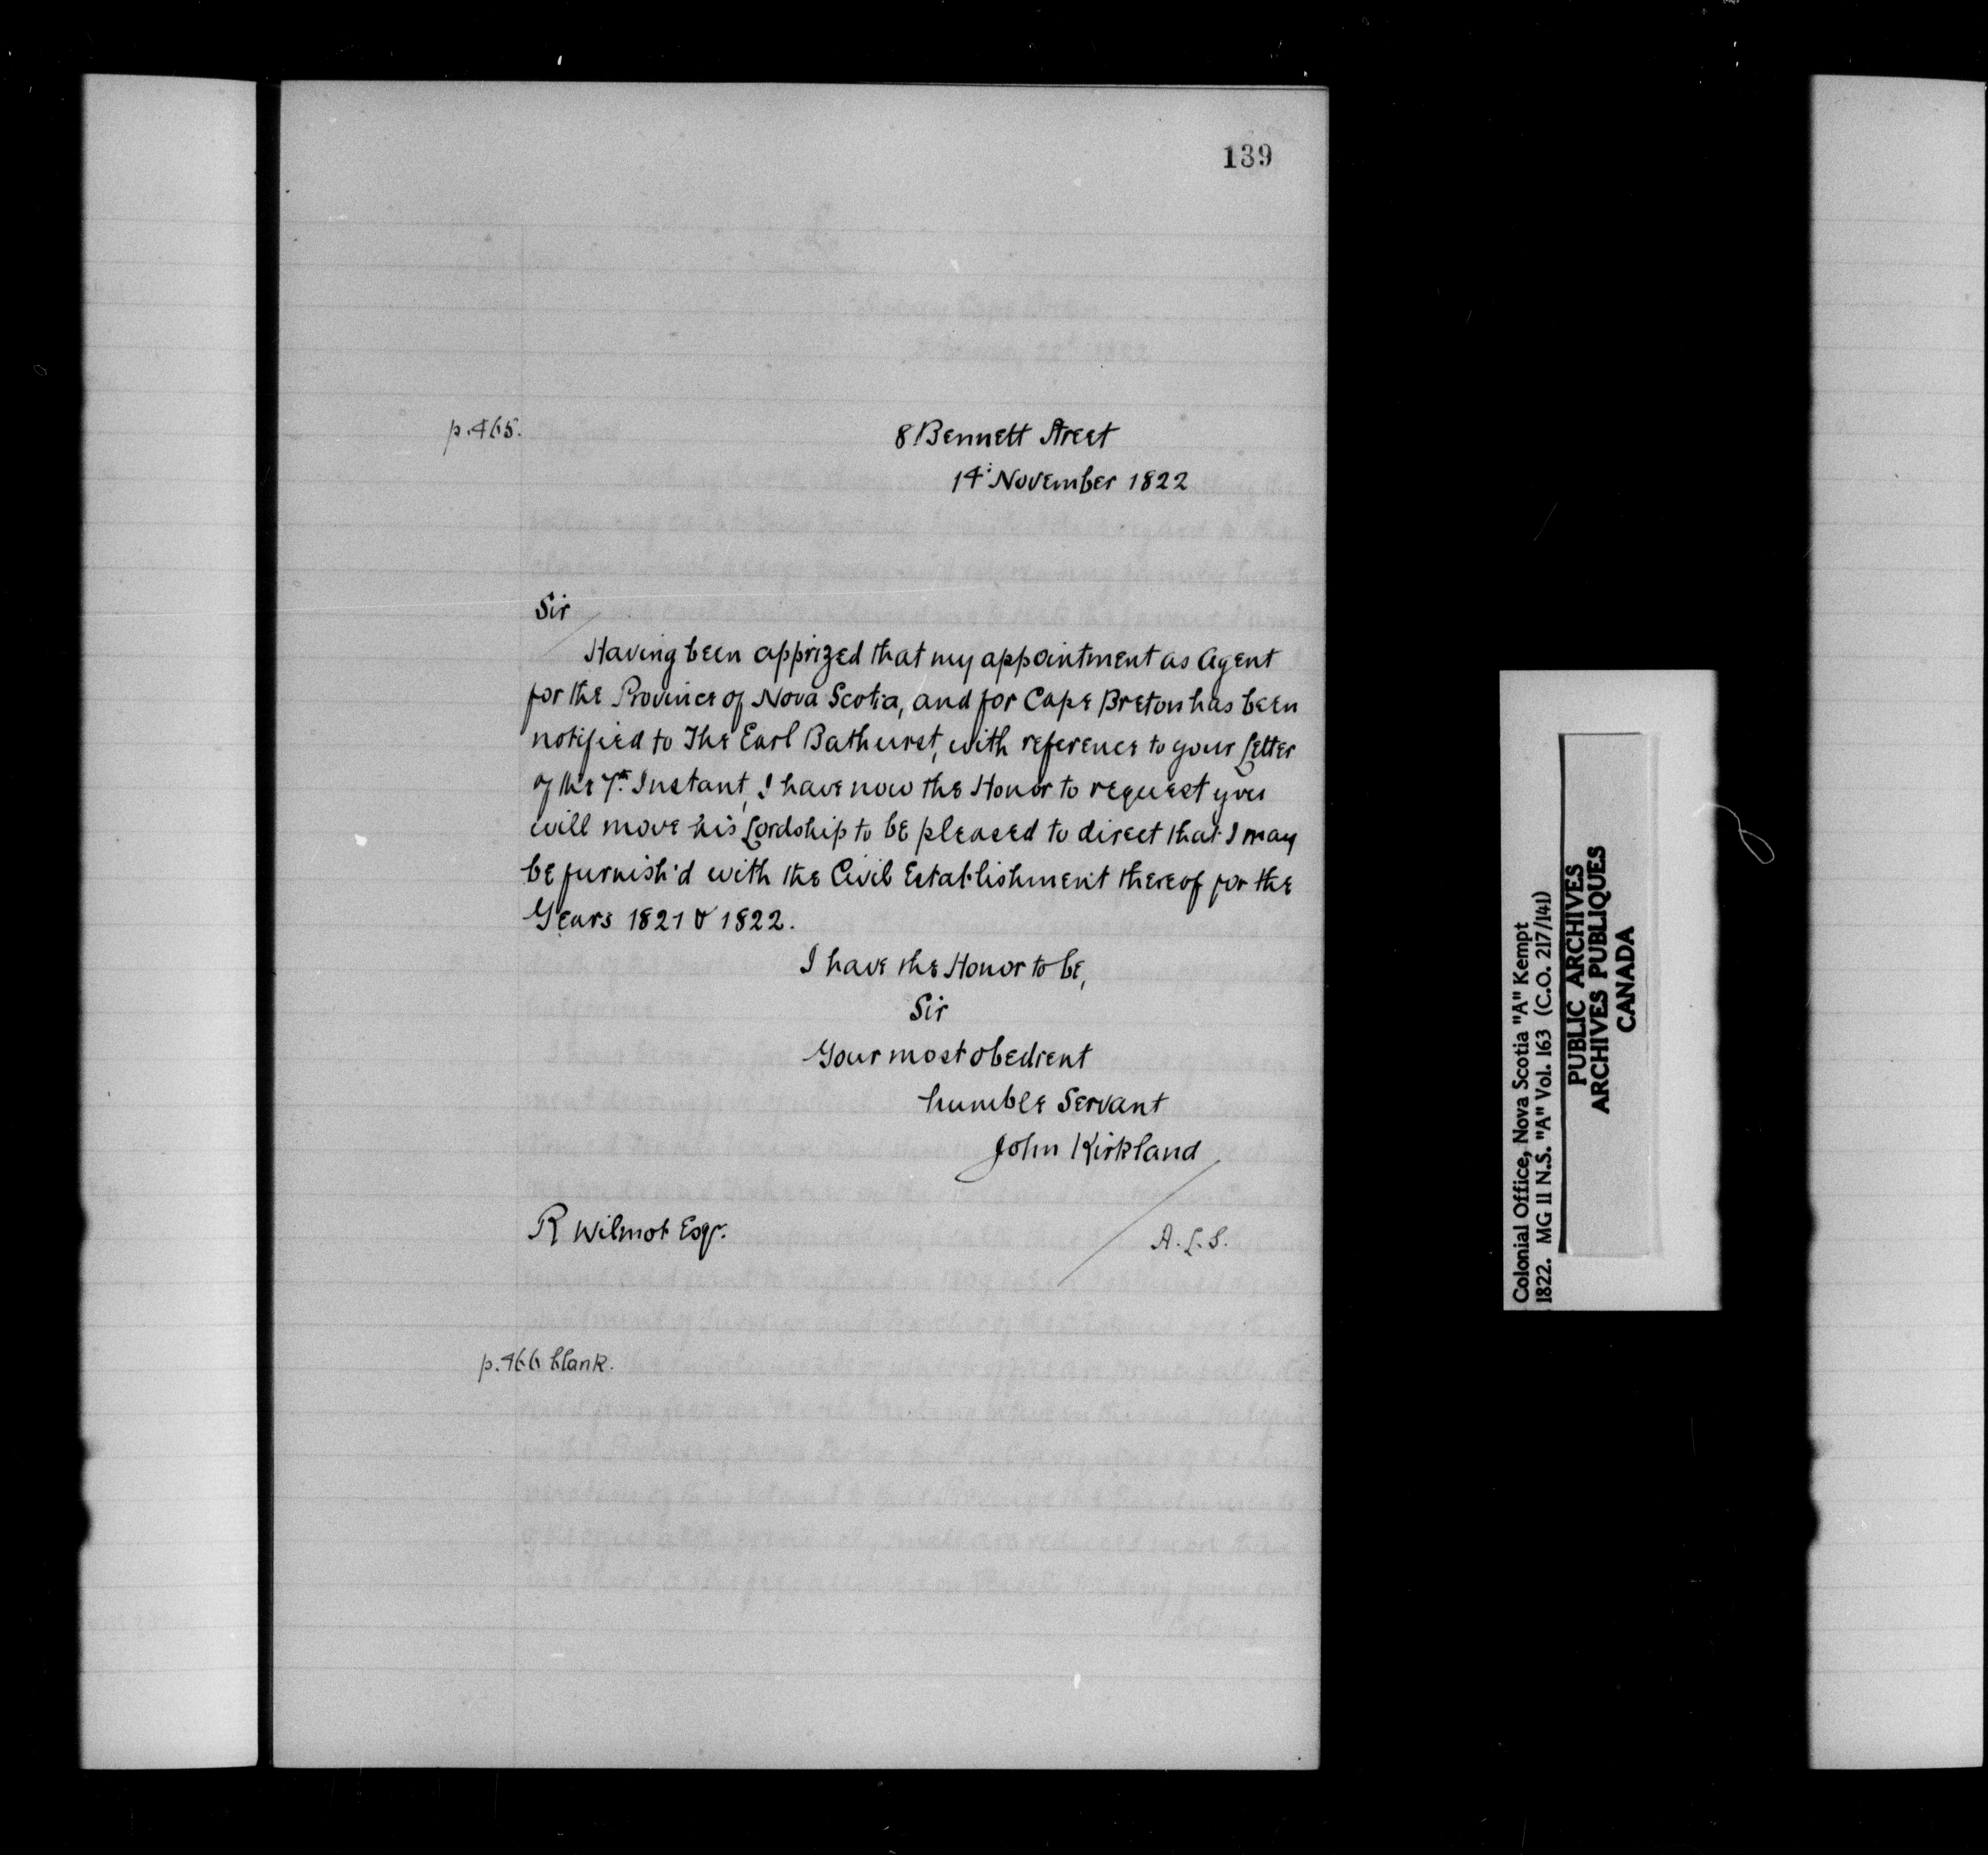 139
p.465.
8 Bennett Street
14: November 1822
Sir
Having been apprized that my appointment as Agent
for the Province of Nova Scotia, and for Cape Breton has been
notified to The Earl Bathurst, with reference to your Letter
of the 7th. Instant, I have now the Honor to request you
will move his Lordship to be pleased to direct that I may
be furnish'd with the Civil Establishment thereof for the
Years 1821 & 1822.
I have the Honor to be,
Sir
Your most obedient
humble Servant
John Kirkland
R Wilmot Esqr.
A.L.S.
p.466 blank.
Colonial Office, Nova Scotia "A" Kempt
1822. MG 11 N.S. "A" Vol. 163 (C.O. 217/141)
PUBLIC ARCHIVES
ARCHIVES PUBLIQUES
CANADA